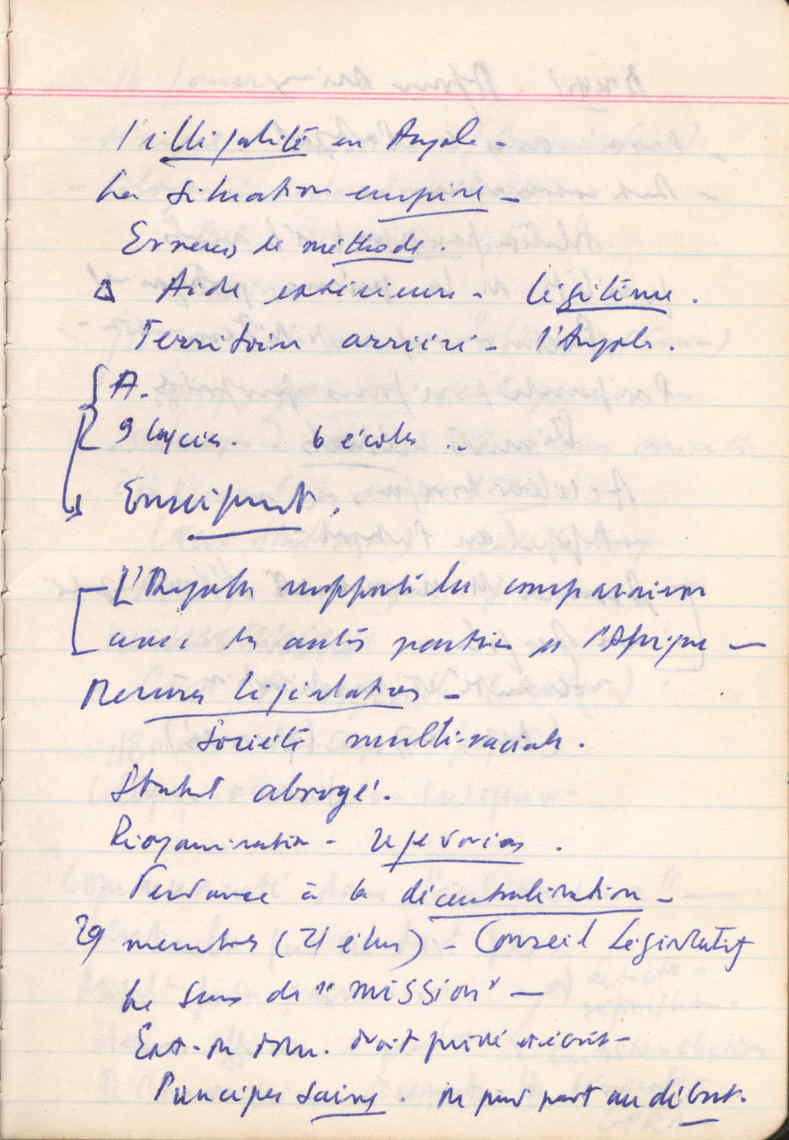 l'illégalité en Angola -
La situation empire -
Erreurs de méthode.
Δ Aide extérieure - légitime.
Territoire arriéré - l'Angola.
A.
9 lycées. 6 écoles ..
Enseignent.
L'Angola supporte la comparaison
avec les autres parties de l'Afrique -
Mesures législatives -
Société multi-raciale.
Statut abrogé.
Réorganisation - regedorias.
Tendance à la décentralisation -
29 membres (21 élus) - Conseil Législatif
Le sens de "mission" -
droit privé
Principes sains. on peut part au début.